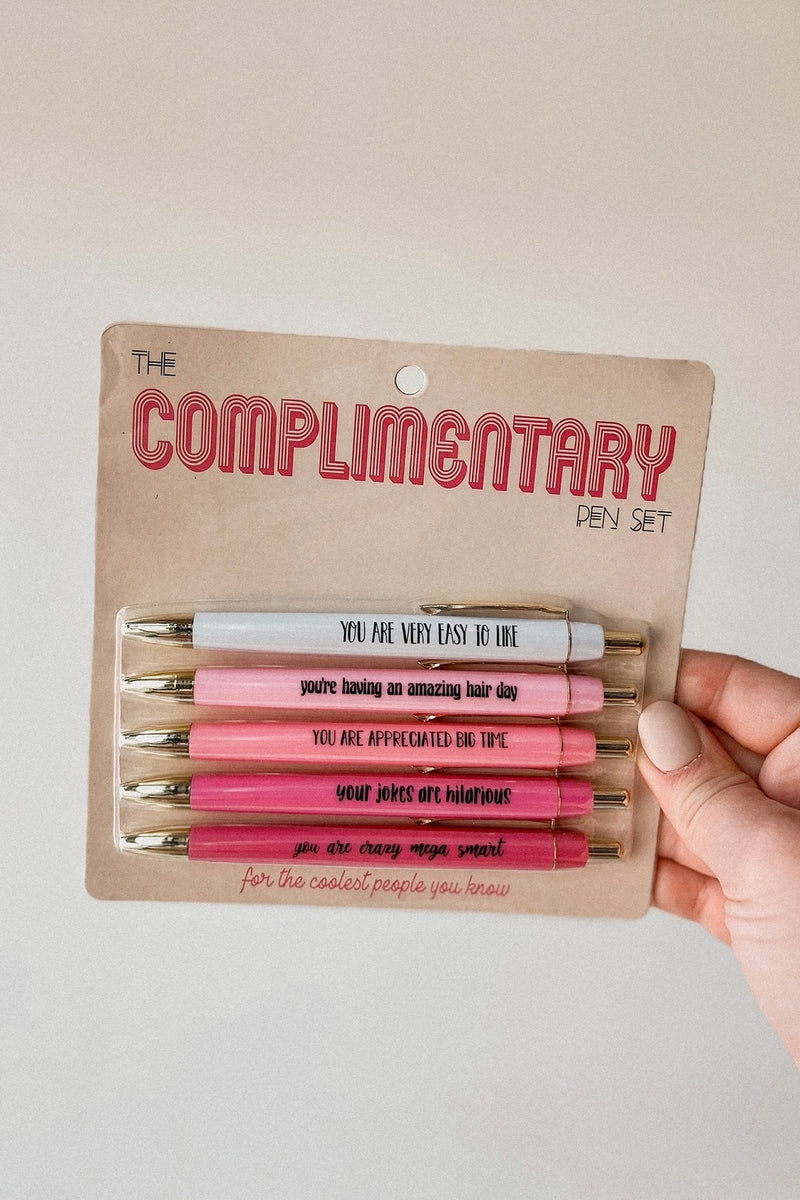 THE
COMPLIMENTARY
PEN SET
YOU ARE VERY EASY TO LIKE
you're having an amazing hair day
YOU ARE APPRECIATED BIG TIME
your jokes are hilarious
you are crazy mega smart
for the coolest people you know